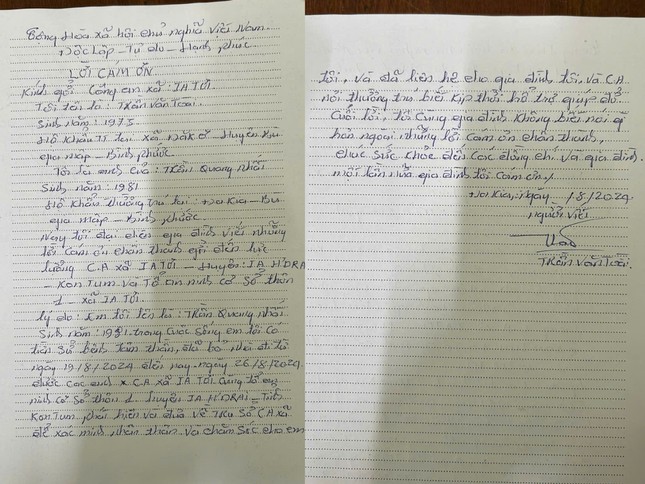 Cộng Hòa xã hội chủ nghĩa Việt Nam.
Độc Lập - Tự do - Hạnh phúc
LỜI CÁM ƠN
Kính gởi Công an xã: IA TƠI.
Tôi tên là: TRẦN VĂN TOẢI.
Sinh năm: 1975
Hộ khẩu TT tại xã Đắk Ơ - Huyện Bù
gia mập - Bình phước.
Tôi là anh của: TRẦN Quang Nhất
Sinh năm: 1981
Hộ khẩu thường trú tại: Đa Kia - Bù
gia mập - Bình phước.
Nay tôi đại diện gia đình viết những
lời cám ơn chân thành gởi đến lực
lượng C.A xã IA TƠI - Huyện: IA H'DRAI
- Kon Tum và Tổ an ninh cơ sở thôn
1 - xã IA TƠI.
Lý do: Em tôi tên là: TRẦN Quang Nhất.
Sinh năm: 1981. trong cuộc sống em tôi có
tiền sử bệnh tâm thần, đã bỏ nhà đi từ
ngày 19/8/2024 đến nay ngày 26/8/2024
được các anh C.A xã IA TƠI cùng tổ an
ninh cơ sở thôn 1. Huyện IA H'DRAI - Tỉnh
KonTum, phát hiện và đưa về Trụ Sở C.A xã
để xác minh nhân thân và chăm sóc cho em
tôi, và đã liên hệ cho gia đình tôi, và C.A
nơi thường trú biết kịp thời hỗ trợ giúp đỡ.
Cuối lời, tôi cùng gia đình không biết nói gì
hơn ngoài những lời cám ơn chân thành,
chúc sức khỏe đến các đồng chí và gia đình.
một lần nữa gia đình tôi cám ơn./
Đa Kia, Ngày /8/2024
Người viết
TRẦN VĂN TOẢI.